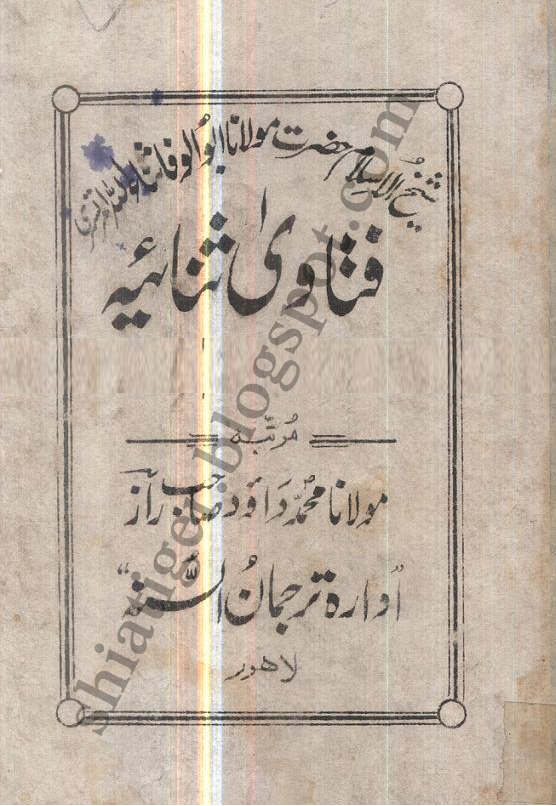 شیخ الاسلام حضرت مولانا ابوالوفا ثناء اللہ امرتسری
فتاویٰ ثنائیہ
مرتبہ
مولانا محمد داؤد صاحب راز
"ادارہ ترجمان السنہ"
لاہور
shiatiger.blogspot.com